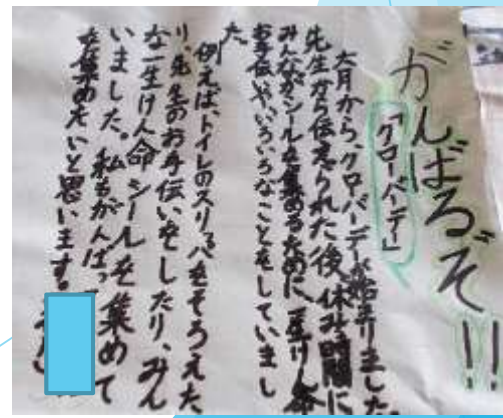 がんばるぞ!!
「クローバーデー」
六月から、クローバーデーが始まりました。
先生から伝えられた後、休み時間に
みんながシールを集めるために、一生けん命
お手伝いやいろいろなことをしていまし
た。
例えば、トイレのスリッパをそろえた
り、先生のお手伝いをしたり、みん
な一生けん命シールを集めて
いました。私もがんばっ
を集めたいと思います。